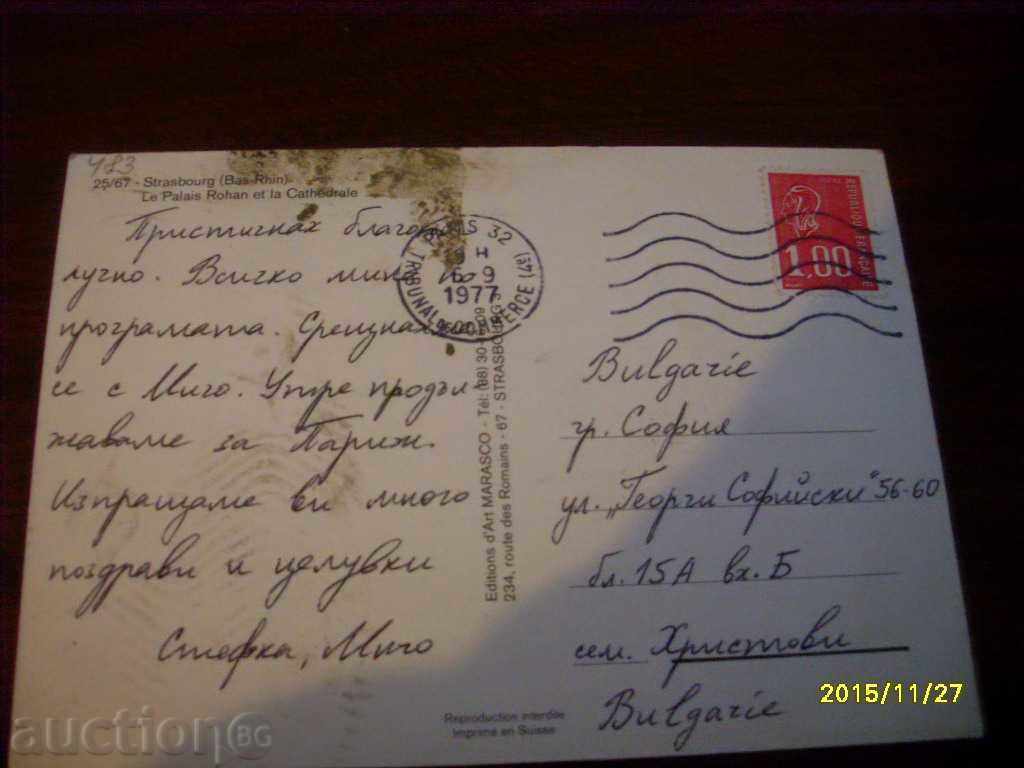 483
25/67 - Strasbourg (Bas-Rhin)
Le Palais Rohan et la Cathédrale
Пристигнах благопо-
лучно. Всичко мина по
програмата. Срещнахме
се с Миго. Утре продъл-
жаваме за Париж.
Изпращаме ви много
поздрави и целувки
Стефка, Миго
PARIS 32
H
6-9
1977
TRIBUNAL COMMERCE (4e)
REPUBLIQUE FRANÇAISE
1,00
Editions d'Art MARASCO - Tél: (88) 30
234, route des Romains - 67 - STRASBOURG 3
Bulgarie
гр. София
ул. „Георги Софийски" 56-60
бл. 15А вх. Б
сем. Христови
Bulgarie
Reproduction interdite
Imprimé en Suisse
2015/11/27
auctionBG